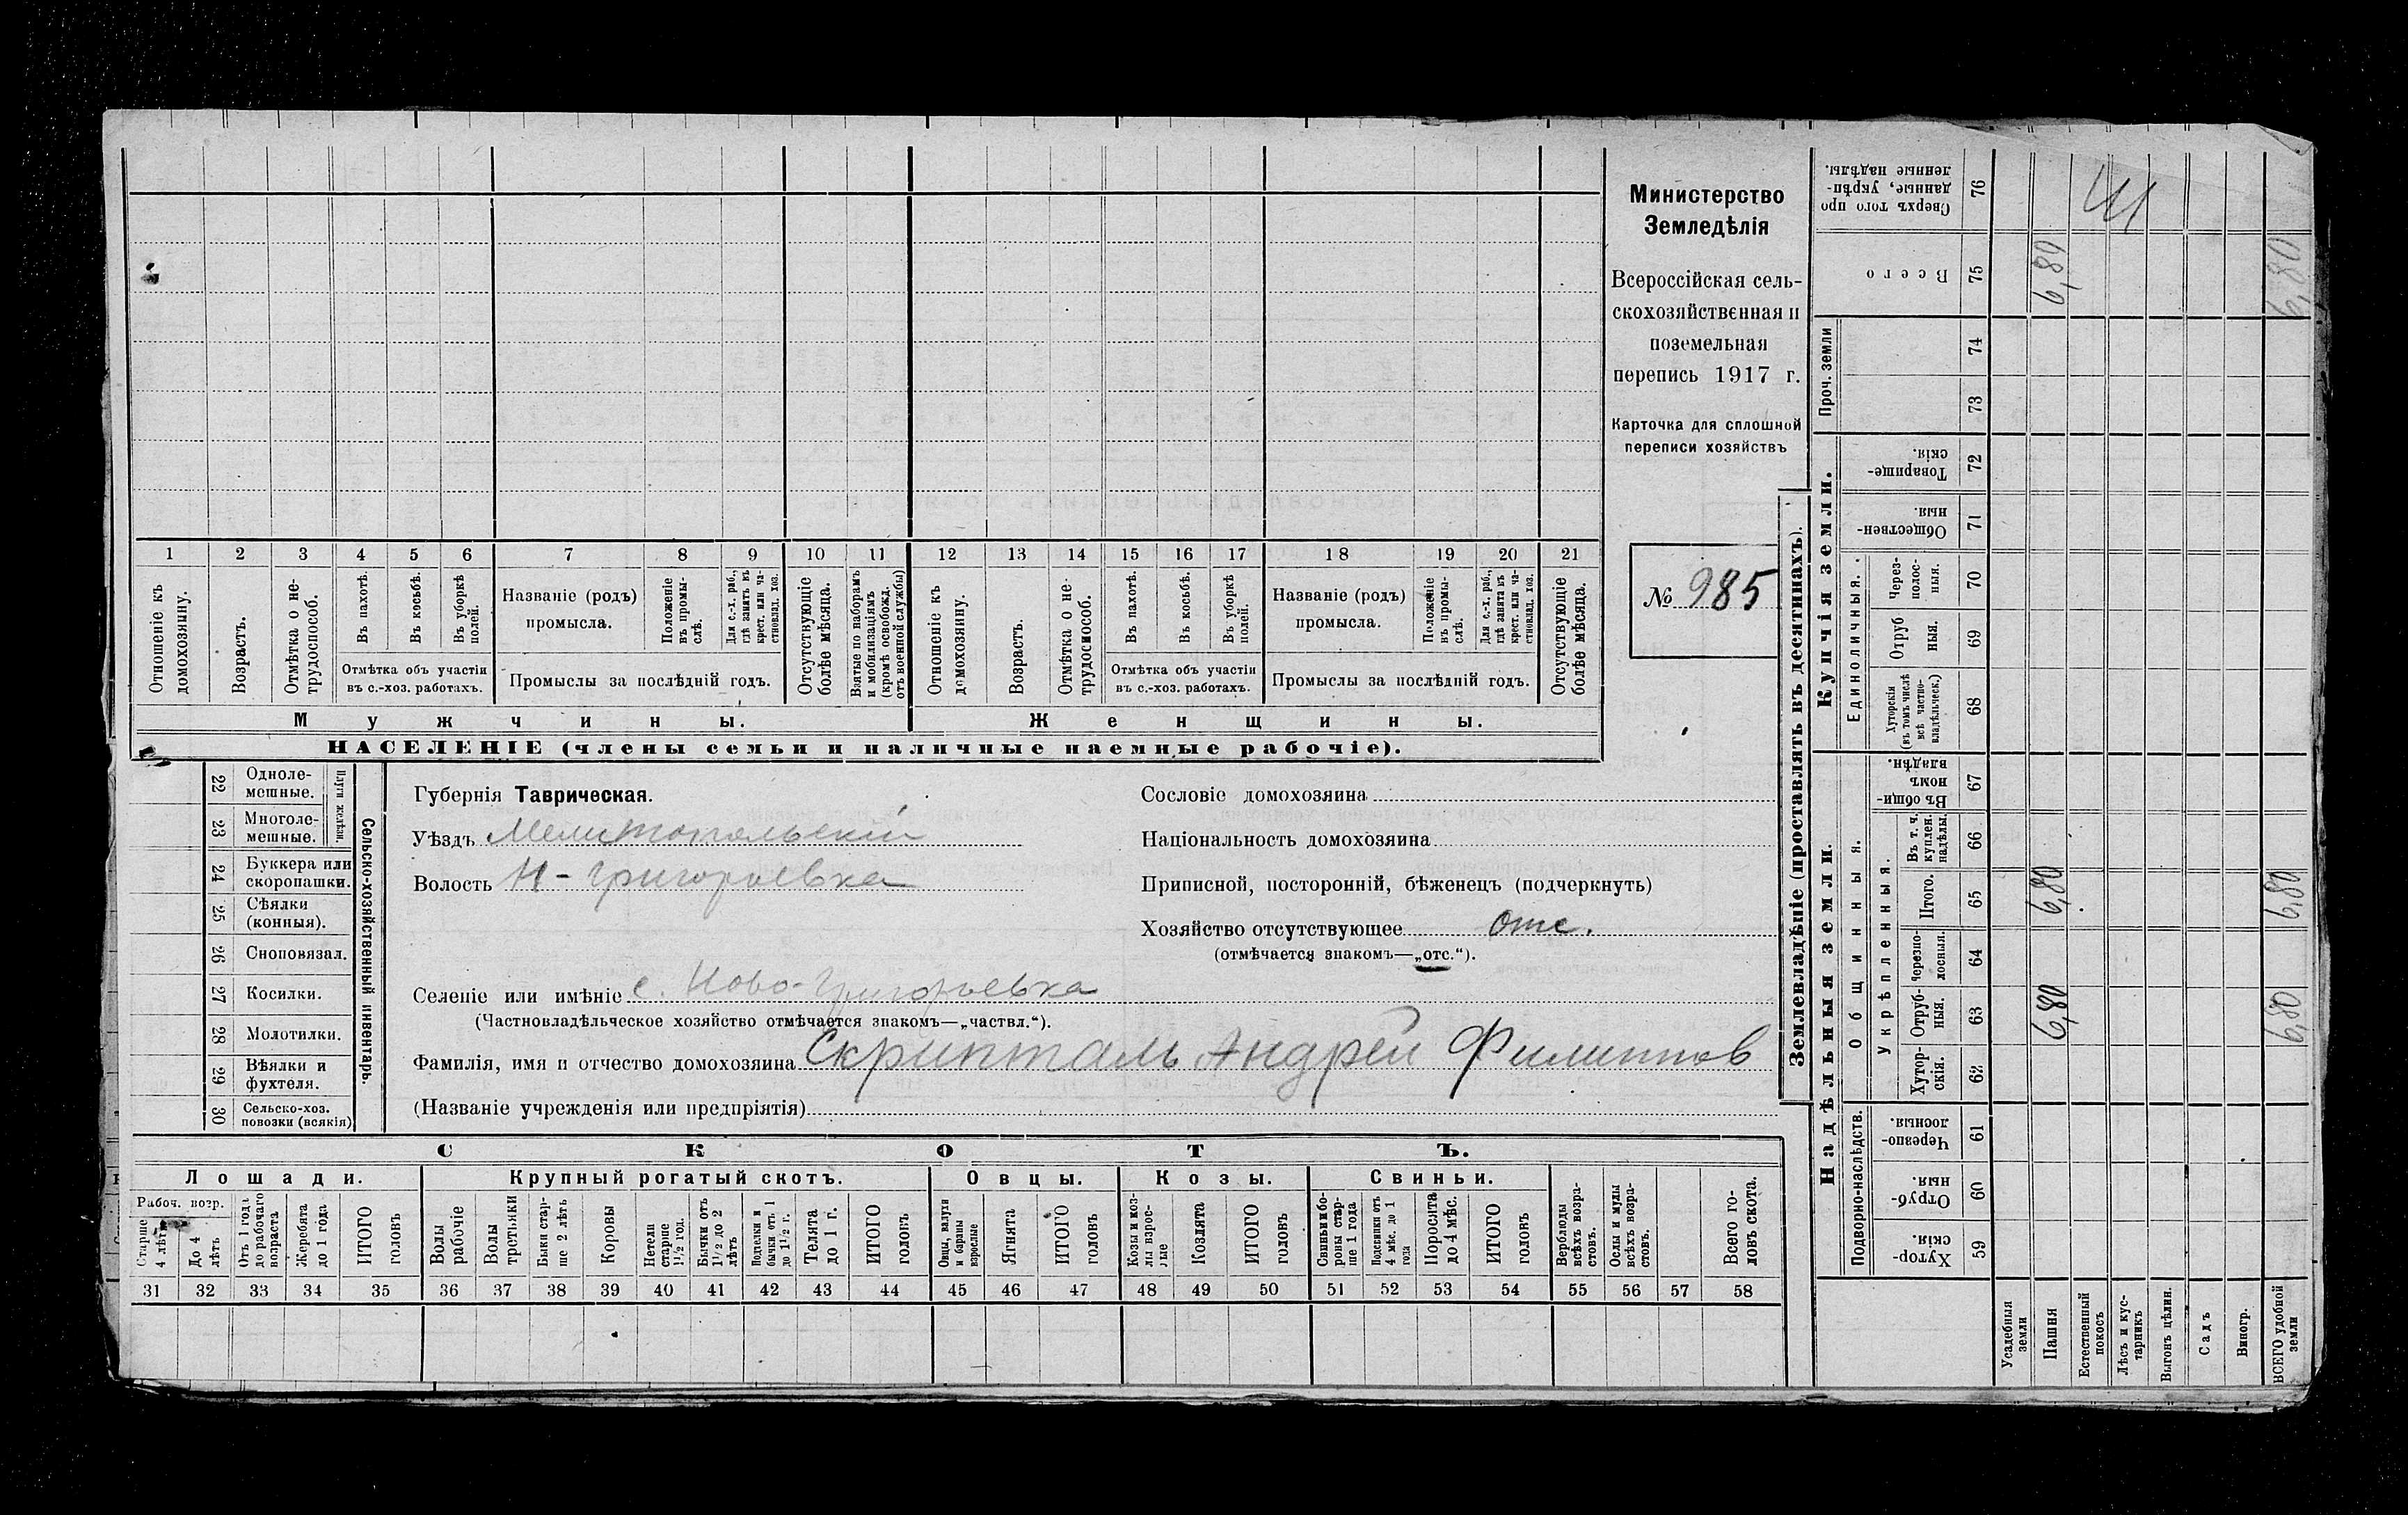 Министерство
Земледѣлія
Всероссійская сель-
скохозяйственная и
поземельная
перепись 1917 г.
Карточка для сплошной
переписи хозяйствъ
№ 985
1 2 3 4 5 6 7 8 9 10 11 12 13 14 15 16 17 18 19 20 21
Отношеніе къ домохозяину.
Возрастъ.
Отмѣтка о не-трудоспособ.
Въ пахотѣ.
Въ косьбѣ.
Въ уборкѣ полей.
Отмѣтка объ участіи
въ с.-хоз. работахъ.
Названіе (родъ)
промысла.
Положеніе въ промы-слѣ.
Для с.-х. раб., гдѣ занятъ въ крест. или ча-стновлад. хоз.
Промыслы за послѣдній годъ.
Отсутствующіе болѣе мѣсяца.
Взятые по наборамъ и мобилизаціямъ (кромѣ освобожд. отъ военной службы)
Отношеніе къ домохозяину.
Возрастъ.
Отмѣтка о не-трудоспособ.
Въ пахотѣ.
Въ косьбѣ.
Въ уборкѣ полей.
Отмѣтка объ участіи
въ с.-хоз. работахъ.
Названіе (родъ)
промысла.
Положеніе въ промы-слѣ.
Для с.-х. раб., гдѣ занята въ крест. или ча-стновлад. хоз.
Промыслы за послѣдній годъ.
Отсутствующіе болѣе мѣсяца.
Мужчины.
Женщины.
НАСЕЛЕНІЕ (члены семьи и наличные наемные рабочіе).
22 Однолемешные.
23 Многолемешные.
Плуги желѣзн.
24 Буккера или скоропашки.
25 Сѣялки (конныя).
26 Сноповязал.
27 Косилки.
28 Молотилки.
29 Вѣялки и фухтеля.
30 Сельско-хоз. повозки (всякія)
Сельско-хозяйственный инвентарь.
Губернія Таврическая.
Уѣздъ Мелитопольскій
Волость Н-Григорьевка
Селеніе или имѣніе с. Ново-Григорьевка
(Частновладѣльческое хозяйство отмѣчается знакомъ—„частвл.“).
Фамилія, имя и отчество домохозяина Скрипталь Андрей Филиппов
(Названіе учрежденія или предпріятія)
Сословіе домохозяина
Національность домохозяина
Приписной, посторонній, бѣженецъ (подчеркнуть)
Хозяйство отсутствующее отс.
(отмѣчается знакомъ—„отс.“).
СКОТЪ.
Лошади.
Крупный рогатый скотъ.
Овцы.
Козы.
Свиньи.
Рабоч. возр.
Старше 4 лѣтъ
До 4 лѣтъ
Отъ 1 года до рабочаго возраста
Жеребята до 1 года
ИТОГО головъ
Волы рабочіе
Волы третьяки
Быки стар-ше 2 лѣтъ
Коровы
Нетели старше 1 1/2 год.
Бычки отъ 1 1/2 до 2 лѣтъ
Подтелки и бычки отъ 1 до 1 1/2 г.
Телята до 1 г.
ИТОГО головъ
Овцы, валухи и бараны взрослые
Ягнята
ИТОГО головъ
Козы и коз-лы взрос-лые
Козлята
ИТОГО головъ
Свиньи и бо-ровы стар-ше 1 года
Подсвинки отъ 4 мѣс. до 1 года
Поросята до 4 мѣс.
ИТОГО головъ
Верблюды всѣхъ возра-стовъ.
Ослы и мулы всѣхъ возра-стовъ.
Всего го-ловъ скота.
31 32 33 34 35 36 37 38 39 40 41 42 43 44 45 46 47 48 49 50 51 52 53 54 55 56 57 58
Землевладѣніе (проставлять въ десятинахъ).
Надѣльныя земли.
Купчія земли.
Проч. земли
Подворно-наслѣдств.
Общинныя.
Укрѣпленныя.
Единоличныя.
Хутор-скія. 59
Отруб-ныя. 60
Черезпо-лосныя. 61
Хутор-скія. 62
Отруб-ныя. 63
Черезпо-лосныя. 64
Итого. 65
Въ т. ч. куплен. надѣлы. 66
Въ общи-номъ владѣн. 67
Хуторскія (въ томъ числѣ всѣ частно-владѣльческ.) 68
Отруб ныя. 69
Через-полос-ныя. 70
Обществен-ныя. 71
Товарище-скія. 72
73
74
Всего 75
Сверхъ того про данные, укрѣп-ленные надѣлы. 76
Усадебныя земли
Пашня 6,80 6,80 6,80
Естественный покосъ
Лѣсъ и кус-тарникъ
Выгонъ цѣлин.
Садъ
Виногр.
ВСЕГО удобной земли 6,80 6,80 6,80